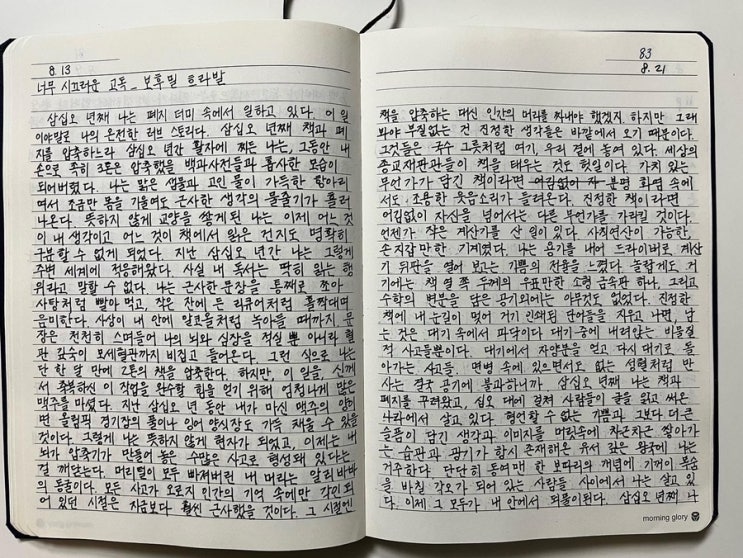 8.13
너무 시끄러운 고독_ 보후밀 흐라발
삼십오 년째 나는 폐지 더미 속에서 일하고 있다. 이 일
이야말로 나의 온전한 러브 스토리다. 삼십오 년째 책과 폐
지를 압축하느라 삼십오 년간 활자에 찌든 나는, 그동안 내
손으로 족히 3톤은 압축했을 백과사전들과 흡사한 모습이
되어버렸다. 나는 맑은 샘물과 고인 물이 가득한 항아리
여서 조금만 몸을 기울여도 근사한 생각의 물줄기가 흘러
나온다. 뜻하지 않게 교양을 쌓게된 나는 이제 어느 것
이 내 생각이고 어느 것이 책에서 읽은 건지도 명확히
구분할 수 없게 되었다. 지난 삼십오 년간 나는 그렇게
주변 세계에 적응해왔다. 사실 내 독서는 딱히 읽는 행
위라고 말할 수 없다. 나는 근사한 문장을 통째로 쪼아
사탕처럼 빨아 먹고, 작은 잔에 든 리큐어처럼 홀짝대며
음미한다. 사상이 내 안에 알코올처럼 녹아들 때까지. 문
장은 천천히 스며들어 나의 뇌와 심장을 적실 뿐 아니라 혈
관 깊숙이 모세혈관까지 비집고 들어온다. 그런 식으로 나는
단 한 달 만에 2톤의 책을 압축한다. 하지만, 이 일을, 신께
서 축복하신 이 작업을 완수할 힘을 얻기 위해 엄청나게 많은
맥주를 마셨다. 지난 삼십오 년 동안 내가 마신 맥주의 양이
면 올림픽 경기장의 풀이나 잉어 양식장도 가득 채울 수 있을
것이다. 그렇게 나는 뜻하지 않게 현자가 되었고, 이제는 내
뇌가 압축기가 만들어 놓은 수많은 사고로 형성돼 있다는
걸 깨닫는다. 머리털이 모두 빠져버린 내 머리는 알리바바
의 동굴이다. 모든 사고가 오로지 인간의 기억 속에만 각인되
어 있던 시절은 지금보다 훨씬 근사했을 것이다. 그 시절엔
83
8.21
책을 압축하는 대신 인간의 머리를 짜내야 했겠지. 하지만 그래
봐야 부질없는 건 진정한 생각들은 바깥에서 오기 때문이다.
그것들은 국수 그릇처럼 여기, 우리 곁에 놓여 있다. 세상의
종교재판관들이 책을 태우는 것도 헛일이다. 가치 있는
무언가가 담긴 책이라면 분명 화염 속에
서도 조용한 웃음소리가 들려온다. 진정한 책이라면
어김없이 자신을 넘어서는 다른 무언가를 가리킬 것이다.
언젠가 작은 계산기를 산 일이 있다. 사칙연산이 가능한,
손지갑만 한 기계였다. 나는 용기를 내어 드라이버로 계산
기 뒤판을 열어 보고는 기쁨의 전율을 느꼈다. 놀랍게도 거
기에는 책 열 쪽 두께의 우표만한 소형 금속판 하나, 그리고
수학의 변분을 담은 공기외에는 아무것도 없었다. 진정한
책에 내 눈길이 멎어 거기 인쇄된 단어들을 지우고 나면, 남
는 것은 대기 속에서 파닥이다 대기 중에 내려앉는 비물질
적 사고들뿐이다. 대기에서 자양분을 얻고 다시 대기로 돌
아가는 사고들. 면병 속에 있으면서도 없는 성혈처럼 만
사는 결국 공기에 불과하니까. 삼십오 년째 나는 책과
폐지를 꾸려왔고, 십오 대에 걸쳐 사람들이 글을 읽고 써온
나라에서 살고 있다. 형언할 수 없는 기쁨과 그보다 더 큰
슬픔이 담긴 생각과 이미지를 머릿속에 차근차근 쌓아가
는 습관과 광기가 항시 존재해온 유서 깊은 왕국에 나는
거주한다. 단단히 동여맨 한 보따리의 개념에 기꺼이 목숨
을 바칠 각오가 되어 있는 사람들 사이에서 나는 살고 있
다. 이제 그 모두가 내 안에서 되풀이된다. 삼십오 년째 나
morning glory